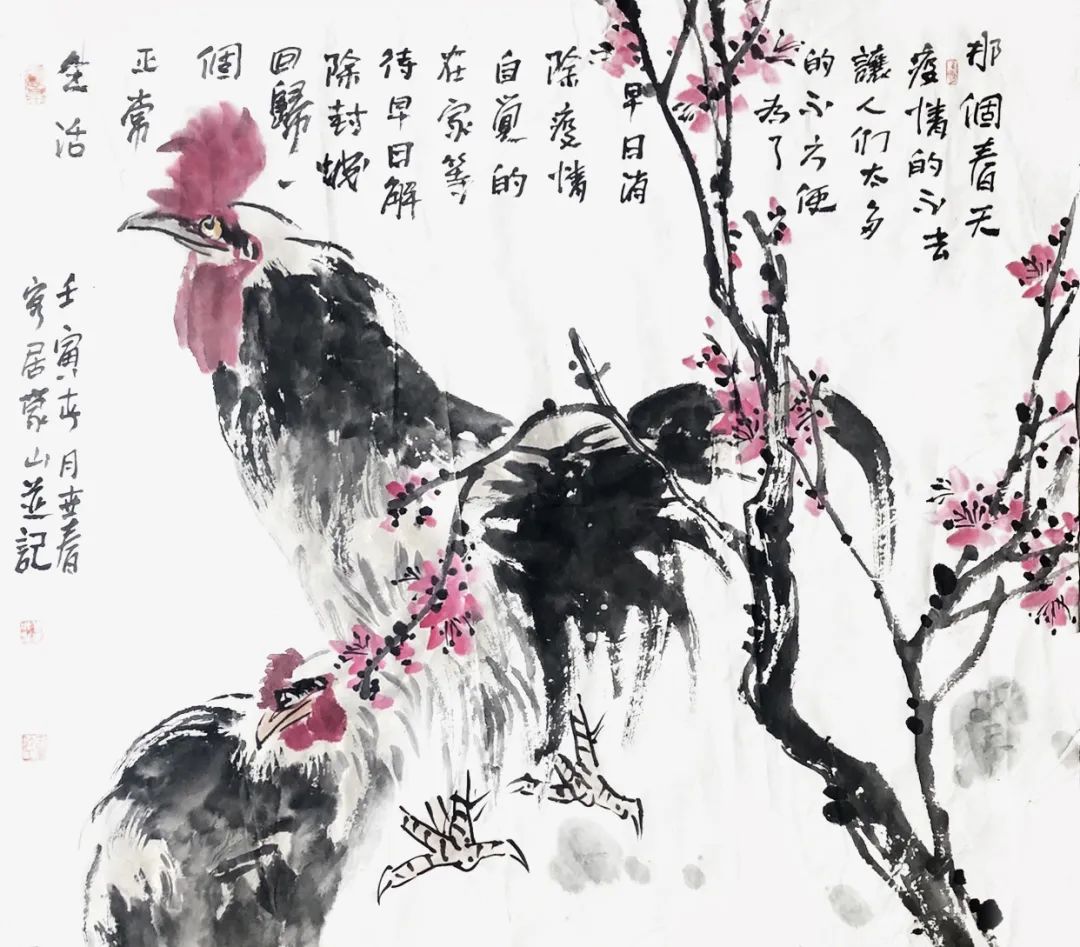 那個春天
疫情的不去
讓人们太多
的不方便
为了
早日消
除疫情
自覺的
在家等
待早日解
除封城
回歸、
個
正常
生活
壬寅古月世春
客居蒙山並記